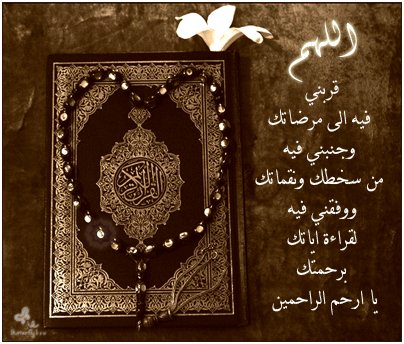 اللهم
قربني
فيه الى مرضاتك
وجنبني فيه
من سخطك ونقماتك
ووفقني فيه
لقراءة آياتك
برحمتك
يا ارحم الراحمين
القرآن الكريم